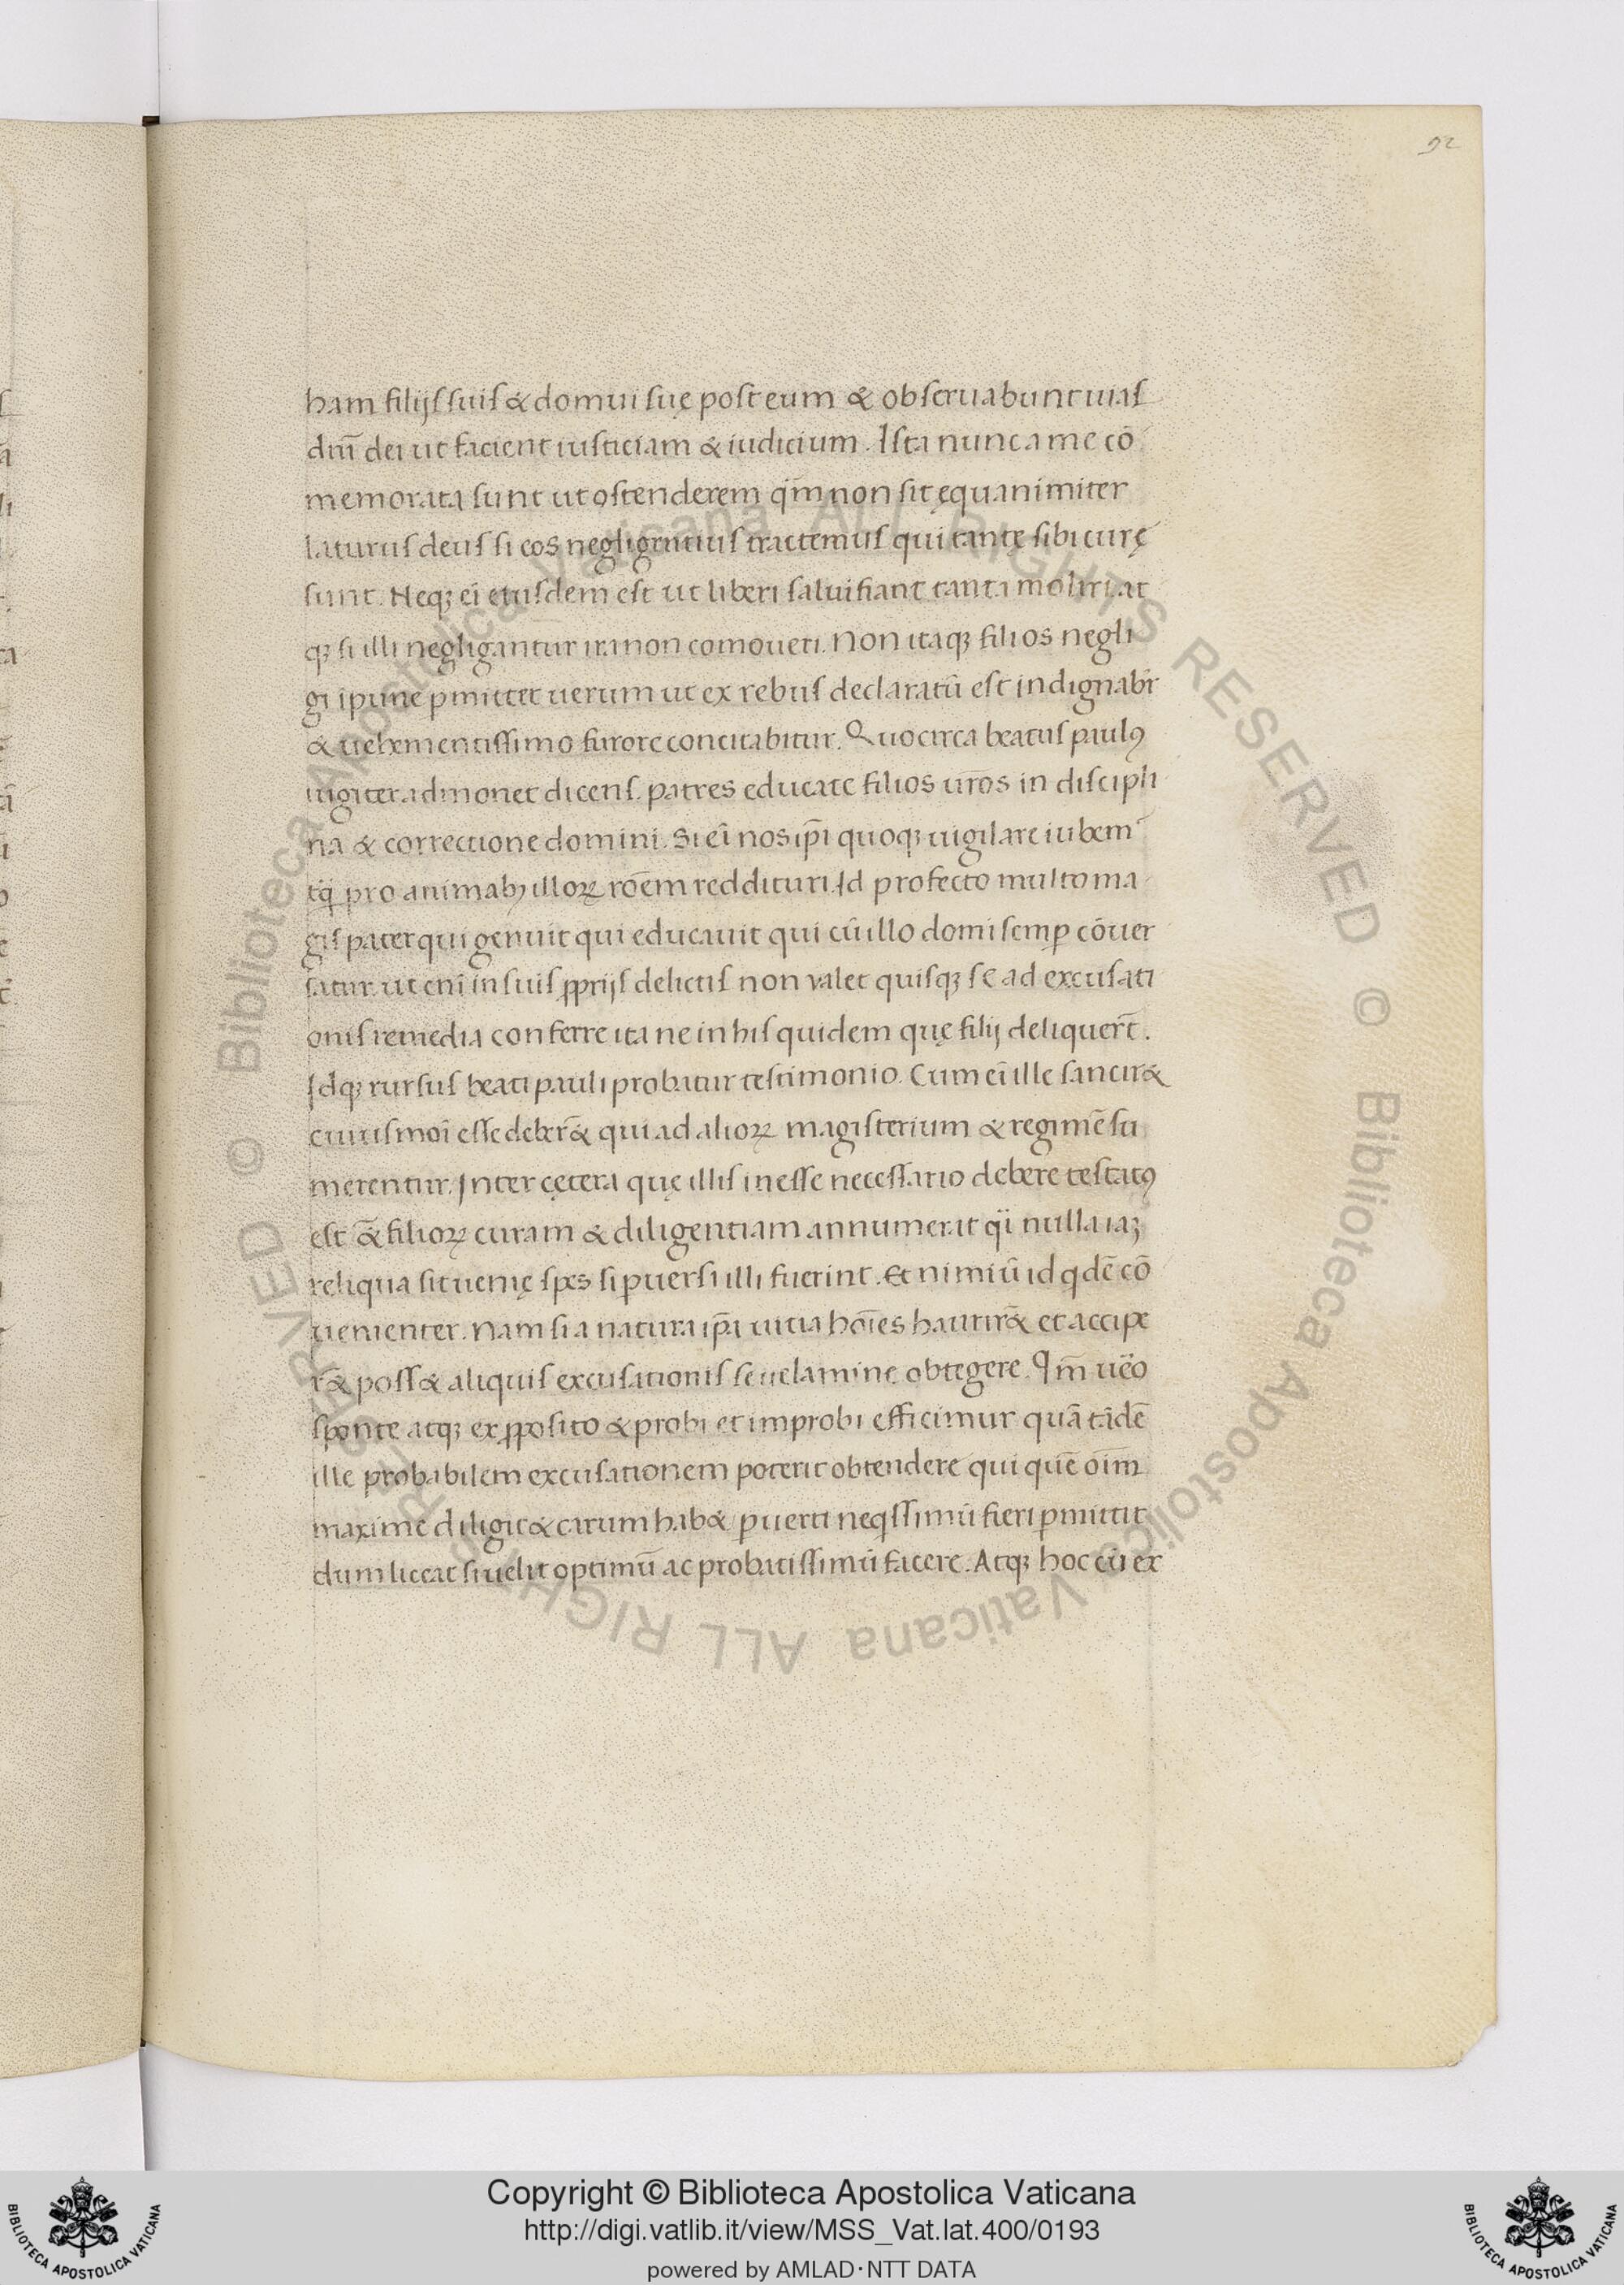 92
ham filijs suis & domui suę post eum & obseruabunt uias
dn̄i dei ut facient iusticiam & iudicium. Ista nunc a me cō
memorata sunt ut ostenderem qm̄ non sit ęquanimiter
laturus deus si eos negligentius tractemus qui tantę sibi curę
sunt. Neqꝫ ei eiusdem est ut liberi salui fiant tanta moliri at
qꝫ si illi negligantur ira non comoueri. Non itaqꝫ filios negli
gi ipune ꝑmittet uerum ut ex rebus declaratū est indignabr̄
& uehementissimo furore concitabitur. Quocirca beatus paulꝰ
iugiter admonet dicens. patres educate filios ur̄os in discipli
na & correctione domini. Si ei̅ nos ip̄i quoqꝫ uigilare iubem
pro animabꝫ illoꝝ ro̅em reddituri. Id profecto multo ma
gis pater qui genuit qui educauit qui cū illo domi semꝑ cōuer
satur. ut eni̅ in suis ꝓprijs delictis non valet quisqꝫ se ad excusati
onis remedia conferre ita ne in his quidem quę filij deliquert̄.
Idqꝫ rursus beati pauli probatur testimonio. Cum ei̅ ille sancir&
cuiusmoi̅ esse deber̄& qui ad alioꝝ magisterium & regimē su
merentur. Inter cętera quę illis inesse necessario debere testatꝰ
est &̄ filioꝝ curam & diligentiam annumerat qi nulla iaꝫ
reliqua sit uenię spes si ꝑuersi illi fuerint. Et nimiū id qdē cō
uenienter. Nam si a natura ip̄a uitia ho̅ies haurir̄& et accipe
r& poss& aliquis excusationis se uelamine obtegere. Qm̄ uēo
sponte atqꝫ ex ꝓposito & probi et improbi efficimur quā tādē
ille probabilem excusationem poterit obtendere qui quē oi̅m
maxime diligit & carum hab& ꝑuerti neqissimū fieri ꝑmittit
dum liceat si uelit optimū ac probatissimū facere. Atqꝫ hoc cū ex
Copyright © Biblioteca Apostolica Vaticana
http://digi.vatlib.it/view/MSS_Vat.lat.400/0193
powered by AMLAD·NTT DATA
BIBLIOTECA APOSTOLICA VATICANA
BIBLIOTECA APOSTOLICA VATICANA
© Biblioteca Apostolica Vaticana ALL RIGHTS RESERVED © Biblioteca Apostolica Vaticana ALL RIGHTS RESERVED